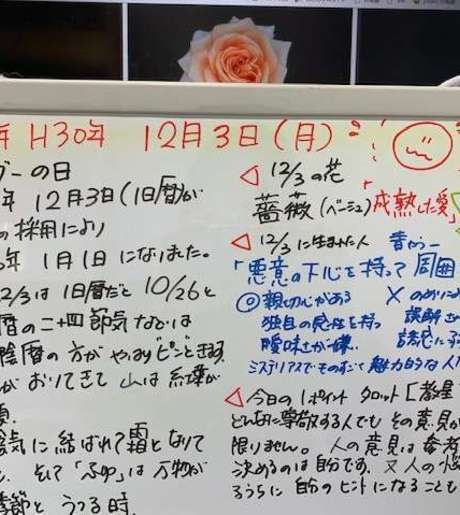 年 H30年 12月3日(月)
ダーの日
年 12月3日(旧暦)が
の採用により
年 1月1日になりました。
12/3は旧暦だと 10/26と
暦の二十四節気などは
陰暦の方がやはりピンときます
がおりてきて 山は紅葉が
陰気に結ばれて霜となりて
そして「ふゆ」は万物が
季節と うつる時、
◁ 12/3の花
薔薇(ベージュ)「成熟した愛」
◁ 12/3に生まれた人 昔から
「悪意の下心を持って周囲
◎親切心がある
独自の感性を持つ
曖昧さが嫌。
×のめり
誤解さ
誘惑に
ミステリアスでものすごく魅力的な人
◁ 今日の1ポイント タロット[教星
どんなに尊敬する人でも その意見が
限りません。 人の意見は参考
決めるのは自分です。又人の悩
ろうちに 自分のヒントになることも